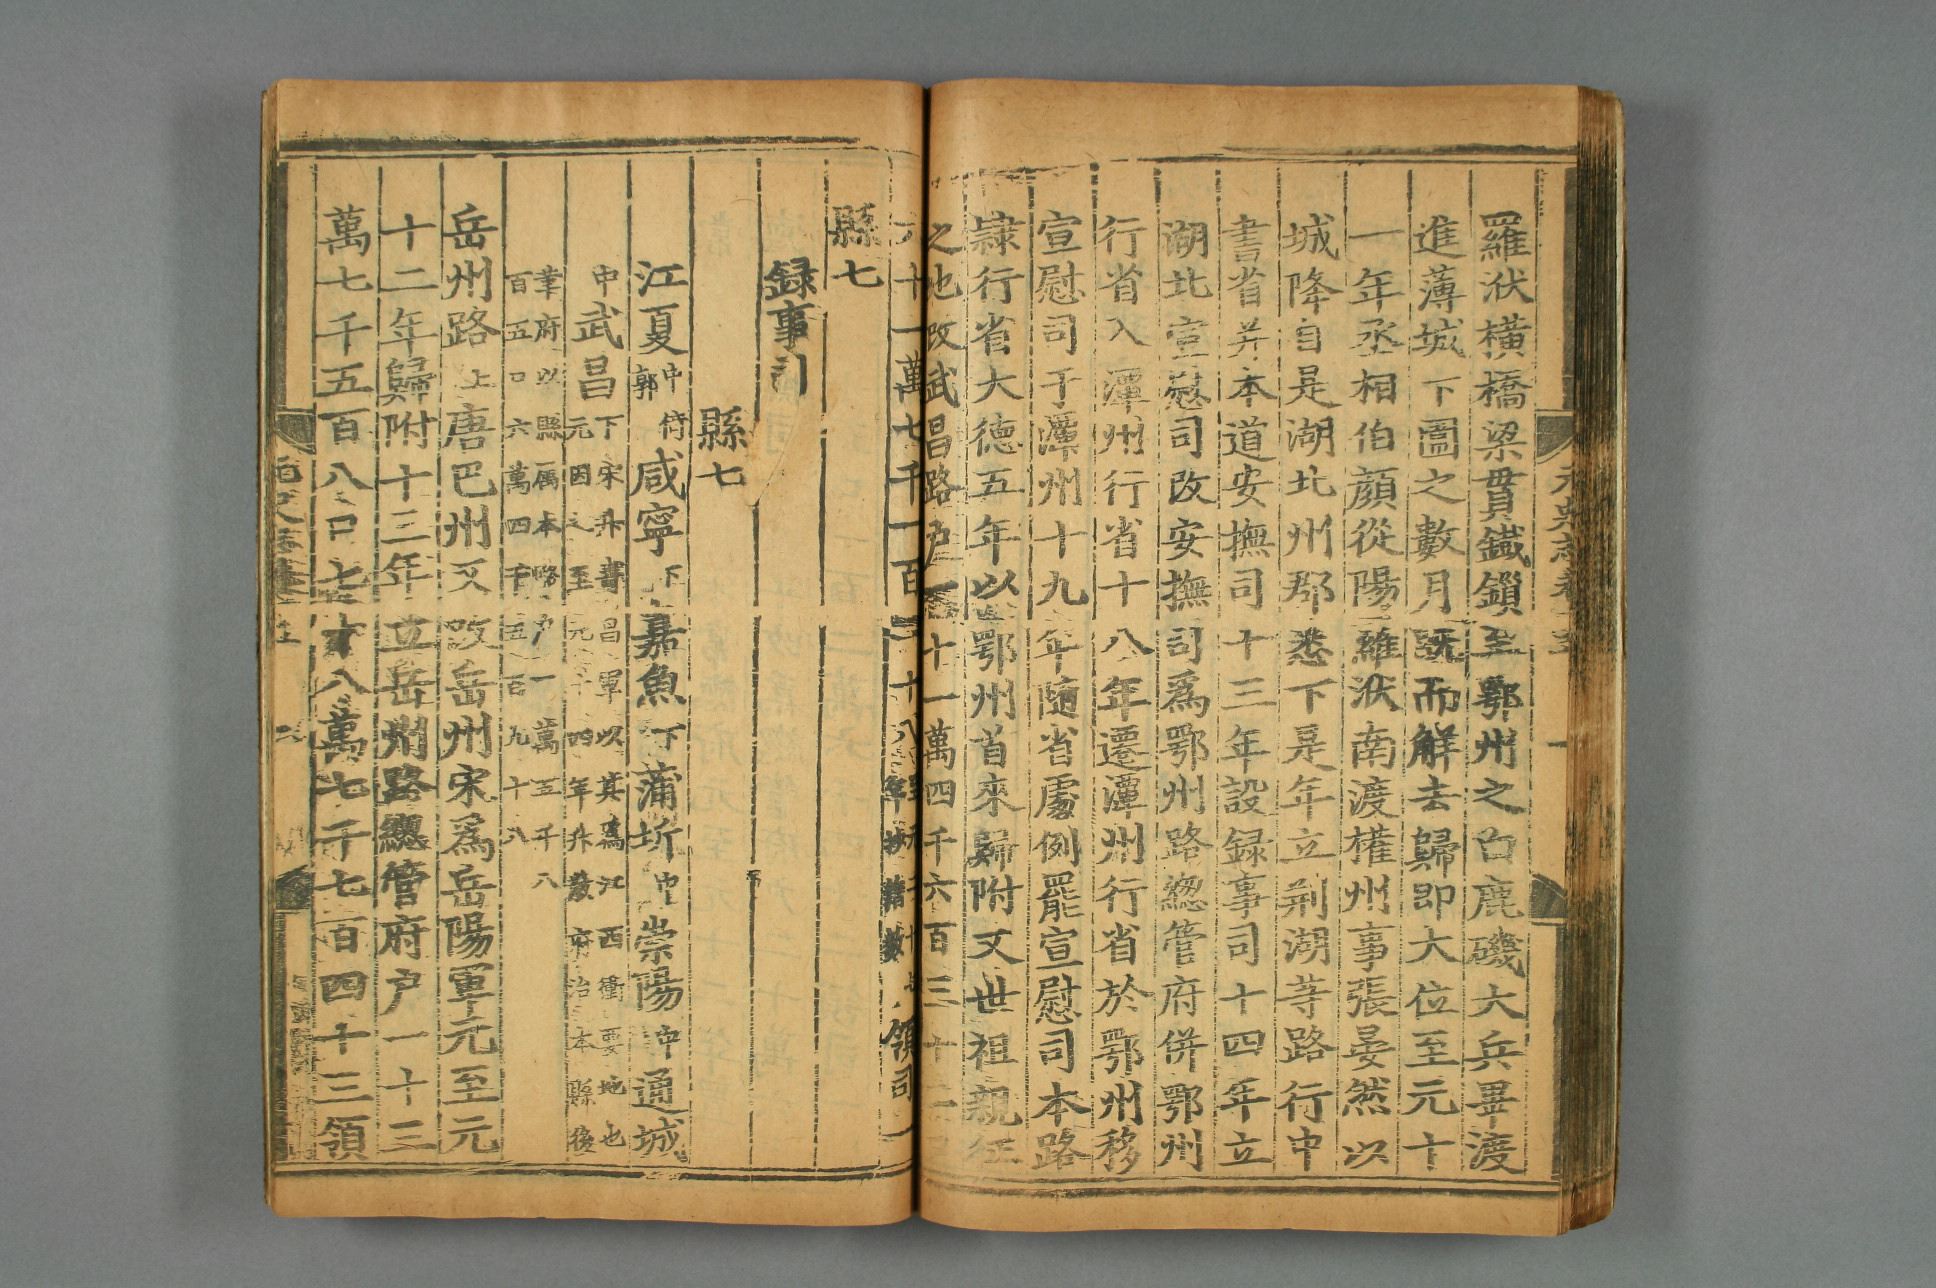 羅洑橫橋梁貫鐵鎖至鄂州之白鹿磯大兵畢渡
進薄城下圍之數月旣而解去歸即大位至元十
一年丞相伯顏從陽羅洑南渡權州事張晏然以
城降自是湖北州郡悉下是年立荆湖等路行中
書省并本道安撫司十三年設録事司十四年立
湖北宣慰司改安撫司爲鄂州路緫管府併鄂州
行省入潭州行省十八年遷潭州行省於鄂州移
宣慰司于潭州十九年隨省處例罷宣慰司本路
隷行省大德五年以鄂州首來歸附又世祖親征
之地改武昌路戶一十一萬四千六百三十二口
六十一萬七千一百一十八至元二十七年抄籍數領司一
縣七
録事司
縣七
江夏中倚郭咸寧下嘉魚下蒲圻中崇陽中通城
中武昌下宋升壽昌軍以其爲江西衝要地也元因之至元十四年升散府治本縣後
革府以縣屬本路戶一萬五千八百五口六萬四千五百九十八
岳州路上唐巴州又改岳州宋爲岳陽軍元至元
十二年歸附十三年立岳州路總管府戶一十三
萬七千五百八口七十八萬七千七百四十三領